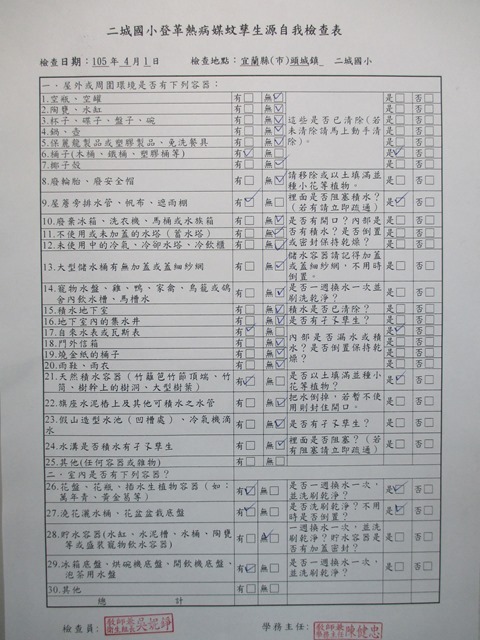 二城國小登革熱病媒蚊孳生源自我檢查表
檢查日期：105 年 4 月 1 日 檢查地點：宜蘭縣(市)頭城鎮_ 二城國小
一．屋外或周圍環境是否有下列容器：
1.空瓶、空罐 有□ 無□ 是□ 否□
2.陶甕、水缸 有□ 無□ 是□ 否□
3.杯子、碟子、盤子、碗 有□ 無□ 這些是否已清除(若 是□ 否□
4.鍋、壺 有□ 無□ 未清除請馬上動手清 是□ 否□
5.保麗龍製品或塑膠製品、免洗餐具 有□ 無□ 除)。 是□ 否□
6.桶子(木桶、鐵桶、塑膠桶等) 有□ 無□ 是□ 否□
7.椰子殼 有□ 無□ 是□ 否□
8.廢輪胎、廢安全帽 有□ 無□ 請移除或以土填滿並種小花等植物。 是□ 否□
9.屋簷旁排水管、帆布、遮雨棚 有□ 無□ 裡面是否阻塞積水？(若有請立即疏通) 是□ 否□
10.廢棄冰箱、洗衣機、馬桶或水族箱 有□ 無□ 是否有開口？內部是 是□ 否□
11.不使用或未加蓋的水塔（蓄水塔） 有□ 無□ 否有積水？是否倒置 是□ 否□
12.未使用中的冷氣、冷卻水塔、冷飲櫃 有□ 無□ 或密封保持乾燥？ 是□ 否□
13.大型儲水桶有無加蓋或蓋細紗網 有□ 無□ 儲水容器請記得加蓋或蓋細紗網，不用時倒置。 是□ 否□
14.寵物水盤、雞、鴨、家禽、鳥籠或鴿舍內飲水槽、馬槽水 有□ 無□ 是否一週換水一次並刷洗乾淨？ 是□ 否□
15.積水地下室 有□ 無□ 積水是否已清除？ 是□ 否□
16.地下室內的集水井 有□ 無□ 是否有孑孓孳生？ 是□ 否□
17.自來水表或瓦斯表 有□ 無□ 是□ 否□
18.門外信箱 有□ 無□ 內部是否漏水或積 是□ 否□
19.燒金紙的桶子 有□ 無□ 水？是否倒置保持乾 是□ 否□
20.雨鞋、雨衣 有□ 無□ 燥？ 是□ 否□
21.天然積水容器（竹籬笆竹節頂端、竹筒、樹幹上的樹洞、大型樹葉） 有□ 無□ 是否以土填滿並種小花等植物？ 是□ 否□
22.旗座水泥樁上及其他可積水之水管 有□ 無□ 把水倒掉，若暫不使用則封住開口。 是□ 否□
23.假山造型水池（凹槽處）、冷氣機滴水 有□ 無□ 是□ 否□
24.水溝是否積水有孑孓孳生 有□ 無□ 裡面是否阻塞？(若有阻塞請立即疏通) 是□ 否□
25.其他(任何容器或雜物) 有□ 無□ 是□ 否□
二．室內是否有下列容器？
26.花盤、花瓶、插水生植物容器（如：萬年青、黃金葛等） 有□ 無□ 是否一週換水一次，並洗刷乾淨？ 是□ 否□
27.澆花灑水桶、花盆盆栽底盤 有□ 無□ 是否洗刷乾淨？不用時是否倒置？ 是□ 否□
28.貯水容器(水缸、水泥槽、水桶、陶甕等或盛裝寵物飲水容器) 有□ 無□ 一週換水一次，並洗刷乾淨？貯水容器是否有加蓋密封？ 是□ 否□
29.冰箱底盤、烘碗機底盤、開飲機底盤、泡茶用水盤 有□ 無□ 是否一週換水一次，並洗刷乾淨？ 是□ 否□
30.其他 有□ 無□ 是□ 否□
總 計
檢查員： 教師兼衛生組長 學務主任： 教師兼學務主任 陳健忠